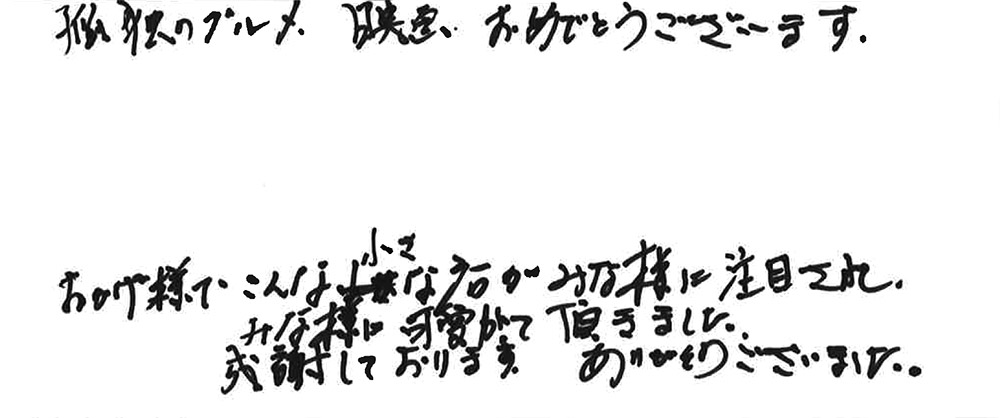 孤独のグルメ. 映画、おめでとうございます.
小さ
おかげ様で こんな な店が みな様に注目され.
みな様に可愛がって頂きました.
感謝しております ありがとうございました..